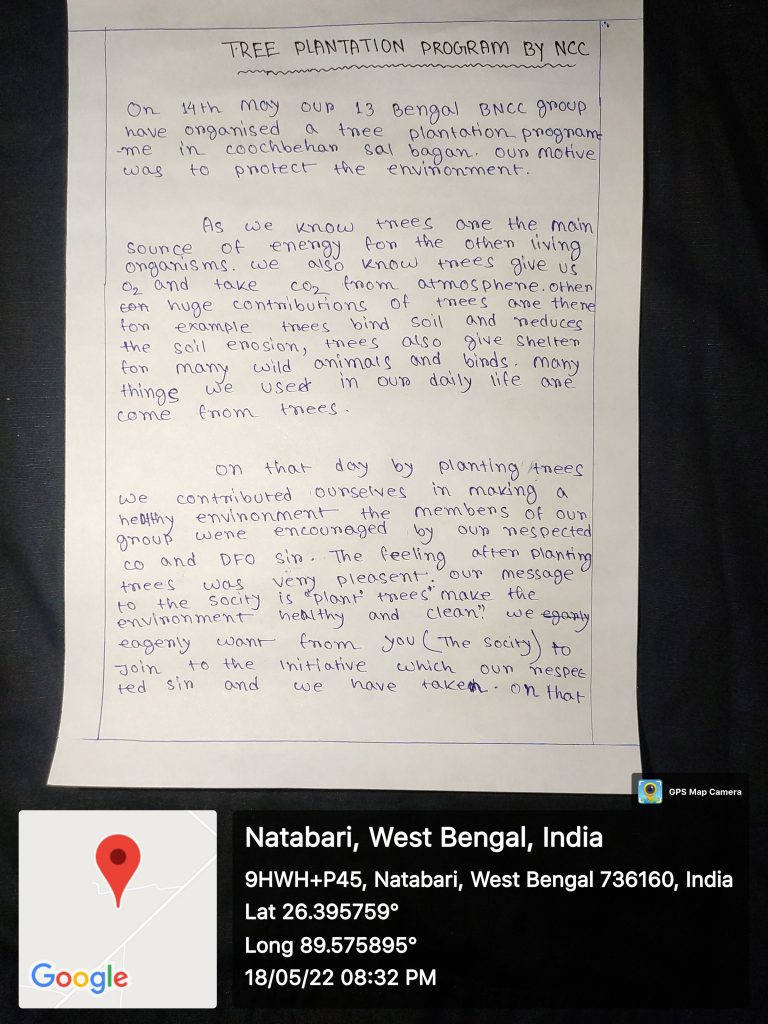 TREE PLANTATION PROGRAM BY NCC
On 14th May our 13 Bengal BNCC group
have organised a tree plantation program
-me in coochbehar sal bagan. our motive
was to protect the environment.
As we know trees are the main
source of energy for the other living
organisms. we also know trees give us
O2 and take CO2 from atmosphere. other
huge contributions of trees are there
for example trees bind soil and reduces
the soil erosion, trees also give shelter
for many wild animals and birds. Many
things we used in our daily life are
come from trees.
on that day by planting trees
we contributed ourselves in making a
healthy environment the members of our
group were encouraged by our respected
co and DFO sir. The feeling after planting
trees was very pleasent. our message
to the socity is "plant" trees" make the
environment healthy and clean". we egarly
eagerly want from you (The socity) to
Join to the initiative which our respec
ted sir and we have taken. on that
GPS Map Camera
Google
Natabari, West Bengal, India
9HWH+P45, Natabari, West Bengal 736160, India
Lat 26.395759°
Long 89.575895°
18/05/22 08:32 PM